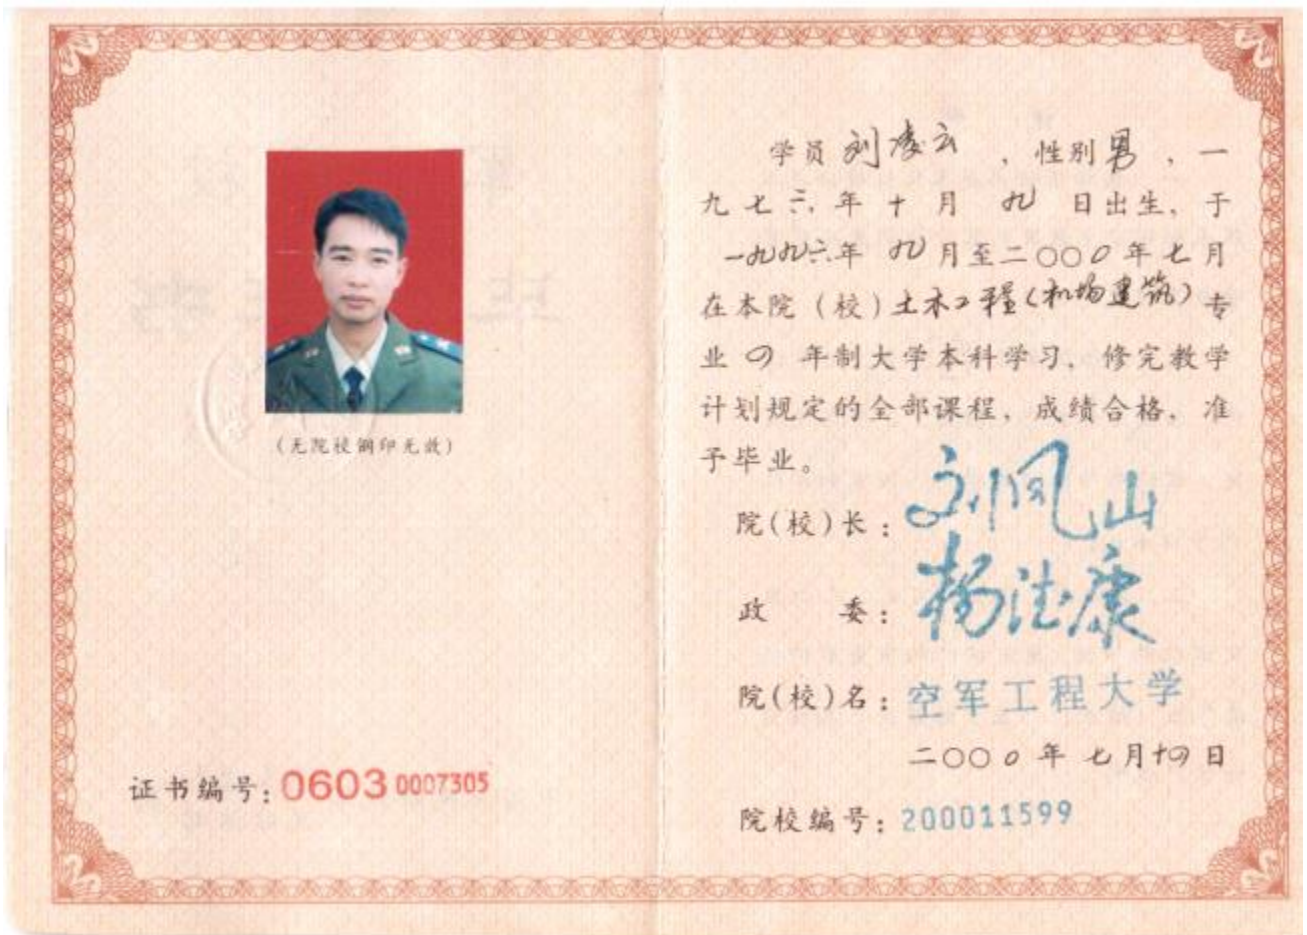 (无院校钢印无效)
证书编号：0603 0007305
学员 刘凌云 ，性别男 ，一
九七六年十月 九 日出生，于
一九九六年 九月至二〇〇〇年七月
在本院（校）土木工程(机场建筑)专
业 四 年制大学本科学习，修完教学
计划规定的全部课程，成绩合格，准
予毕业。
院(校)长：刘凤山
政 委：杨法康
院(校)名：空军工程大学
二〇〇〇年七月十四日
院校编号：200011599